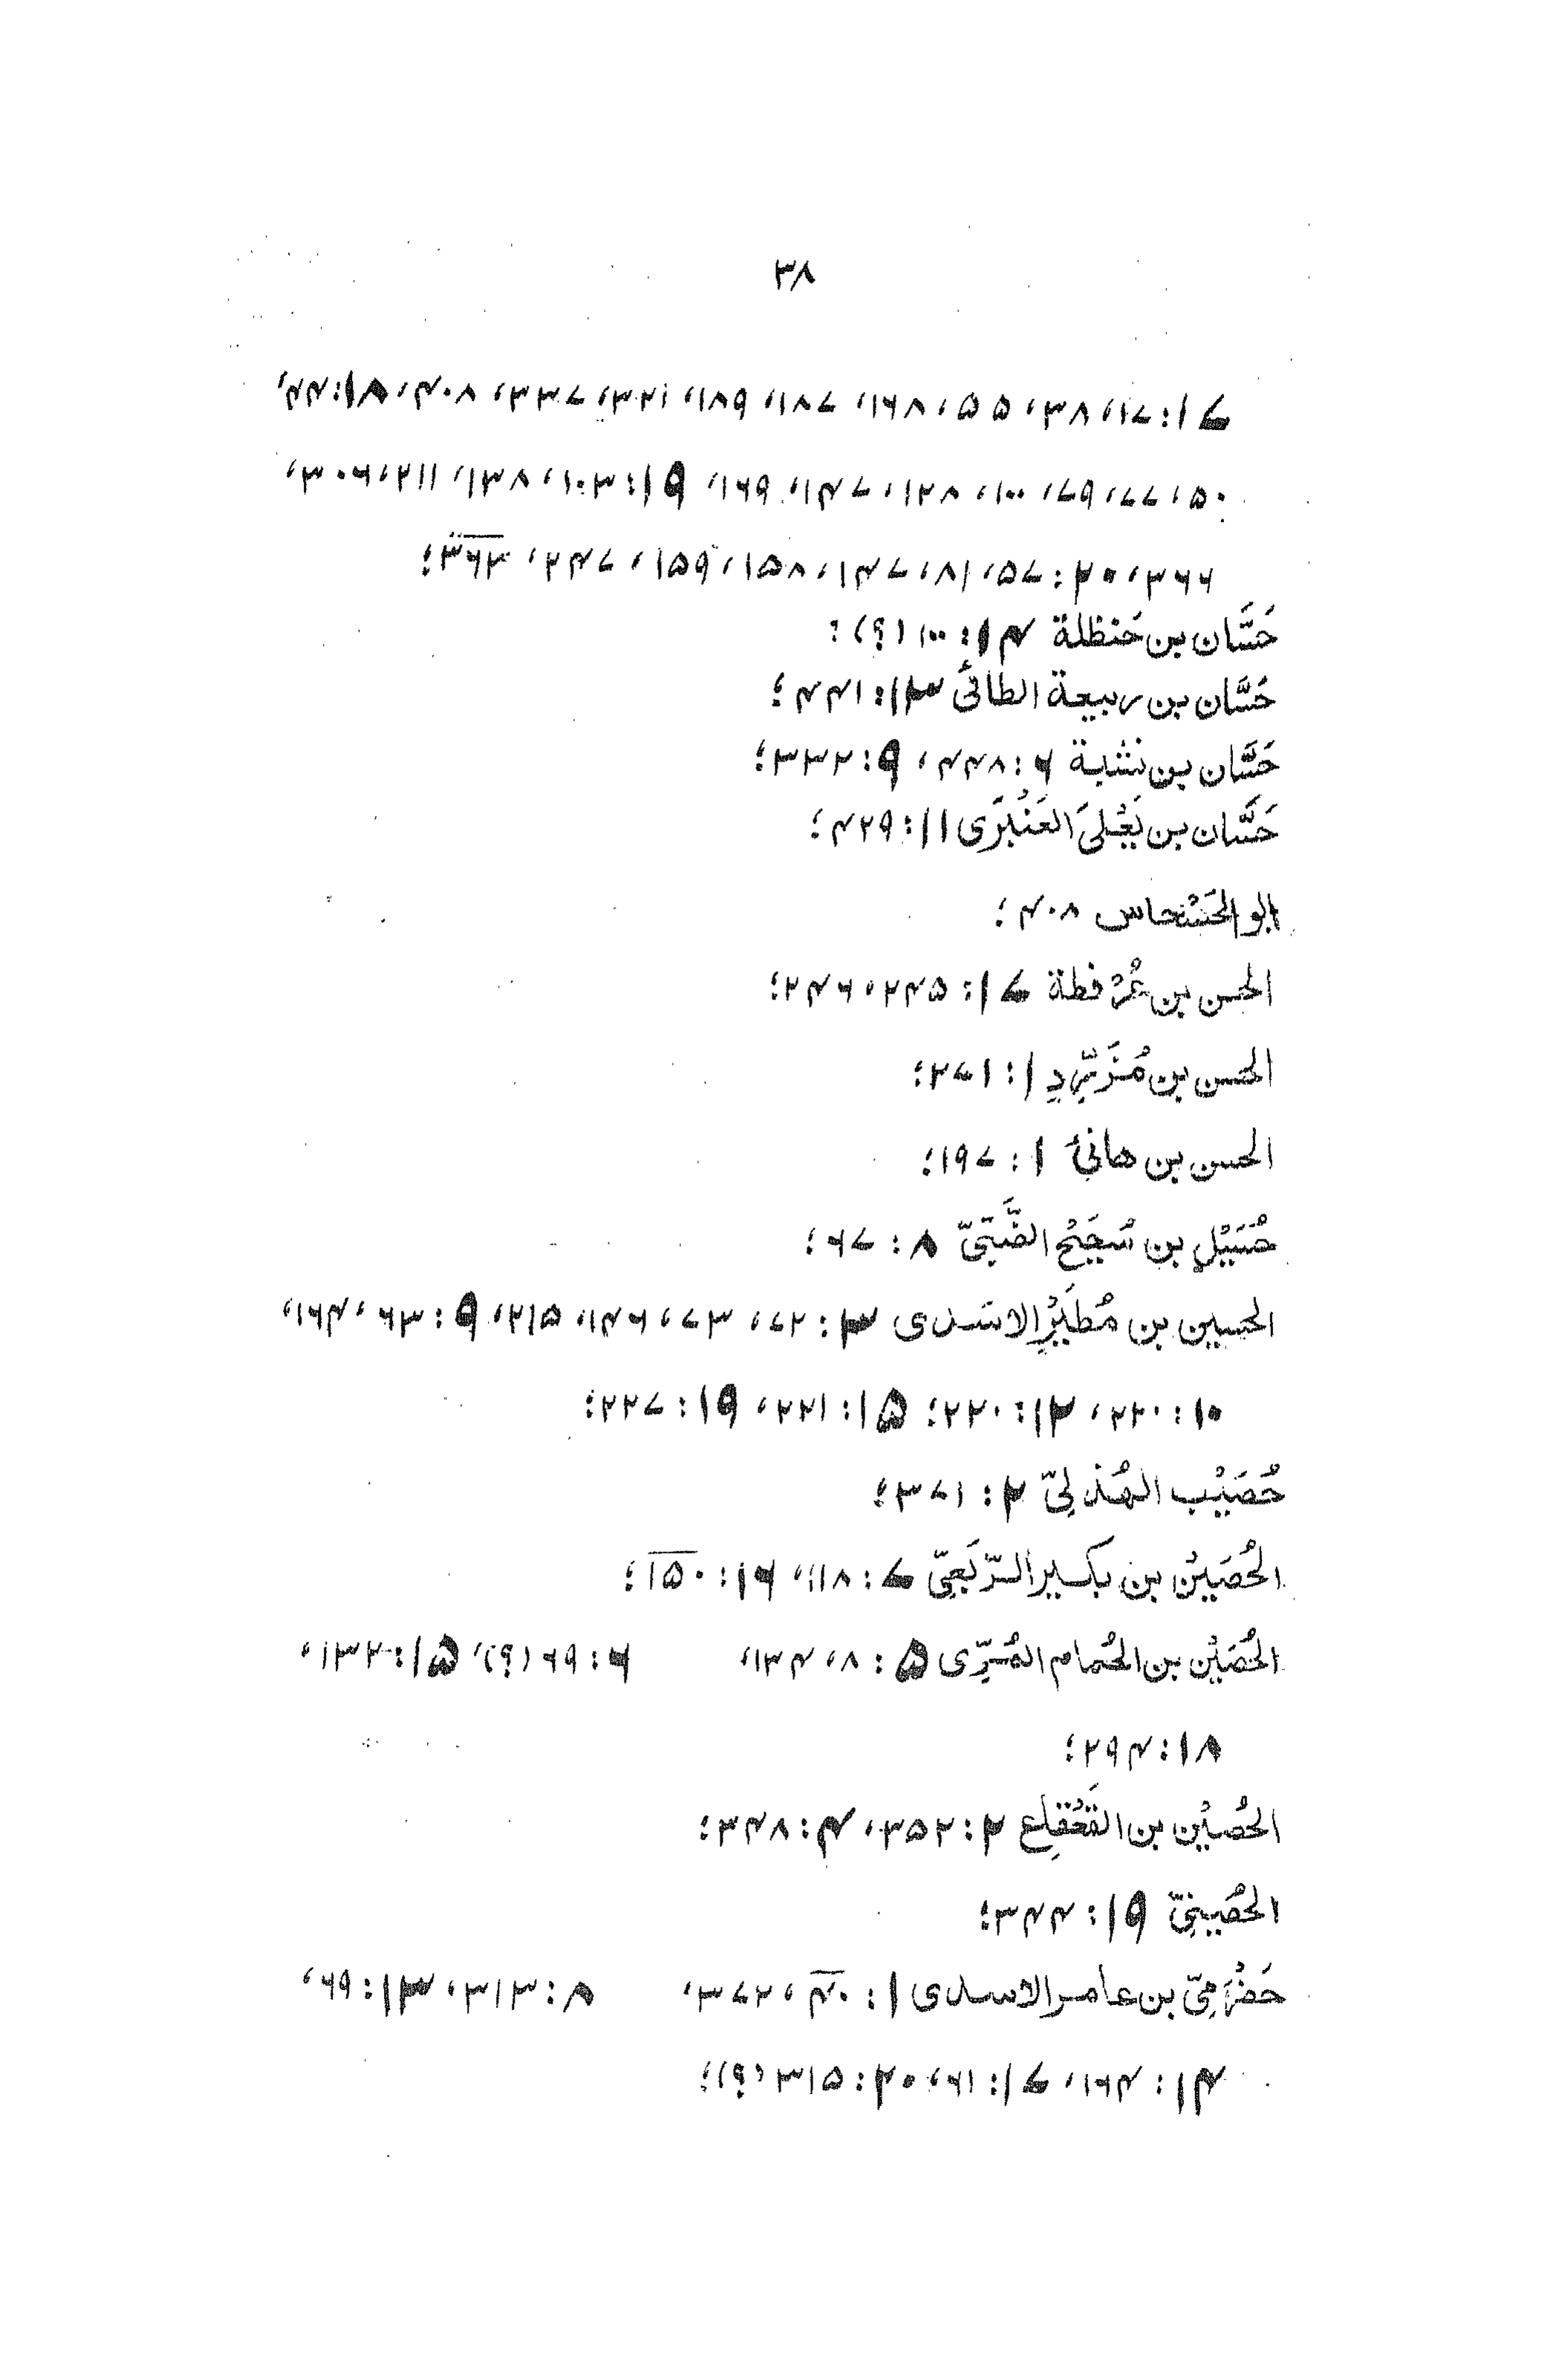 ۳۸
۱۷: ۱۷، ۳۸، ۵۵، ۱۶۸، ۱۸۷، ۱۸۹، ۳۲۱، ۳۳۷، ۴۰۸، ۱۸: ۴۴،
۵۰، ۷۷، ۹۷، ۱۰۰، ۱۲۸، ۱۴۷، ۱۶۹، ۱۹: ۱۰۳، ۱۳۸، ۲۱۱، ۳۰۶،
۳۶۶، ۲۰: ۵۷، ۸۱، ۱۴۷، ۱۵۸، ۱۵۹، ۲۴۷، ۳۶۳؛
حَسَّان بن حَنظلة ۱۴: ۱۰۰ (؟)؛
حَسَّان بن ربيعة الطائئ ۱۳: ۴۴۱؛
حَسَّان بن نشبة ۶: ۴۴۸، ۹: ۳۳۲؛
حَسَّان بن يَعْلىَ العَنْبَرَى ۱۱: ۴۲۹؛
ابو الحَسْحاس ۴۰۸؛
الحسن بن عُرْفطة ۱۷: ۲۴۵، ۲۴۶؛
الحسن بن مُزَرِّدٍ ۱: ۲۷۱؛
الحسن بن هانئ ۱: ۱۹۷؛
حُسَيْلِ بن سُجَيْح الضَّبّىّ ۸: ۶۷؛
الحسين بن مُطَيْرٍ الاسَدى ۳: ۷۲، ۷۳، ۱۴۶، ۲۱۵، ۹: ۶۳، ۱۶۴،
۱۰: ۲۲۰، ۱۲: ۲۲۰؛ ۱۵: ۲۲۱، ۱۹: ۲۲۷؛
حُصَيْب الهُذلِىّ ۲: ۳۷۱؛
الحُصَيْن بن بكير الرَّبَعِىّ ۷: ۱۱۸، ۱۶: ۱۵۰؛
الحُصَيْن بن الحُمام المُرِّى ۵: ۸، ۱۳۴، ۶: ۶۹ (؟)، ۱۵: ۱۳۲،
۱۸: ۲۹۴؛
الحُصيْن بن القَعْقاع ۲: ۳۵۲، ۴: ۳۴۸؛
الحُصَينىّ ۱۹: ۳۴۴؛
حَضْرَمِىّ بن عامر الاسدى ۱: ۴۰، ۳۷۲، ۸: ۳۱۳، ۱۳: ۶۹،
۱۴: ۱۶۴، ۱۷: ۶۱، ۲۰: ۳۱۵ (؟)؛